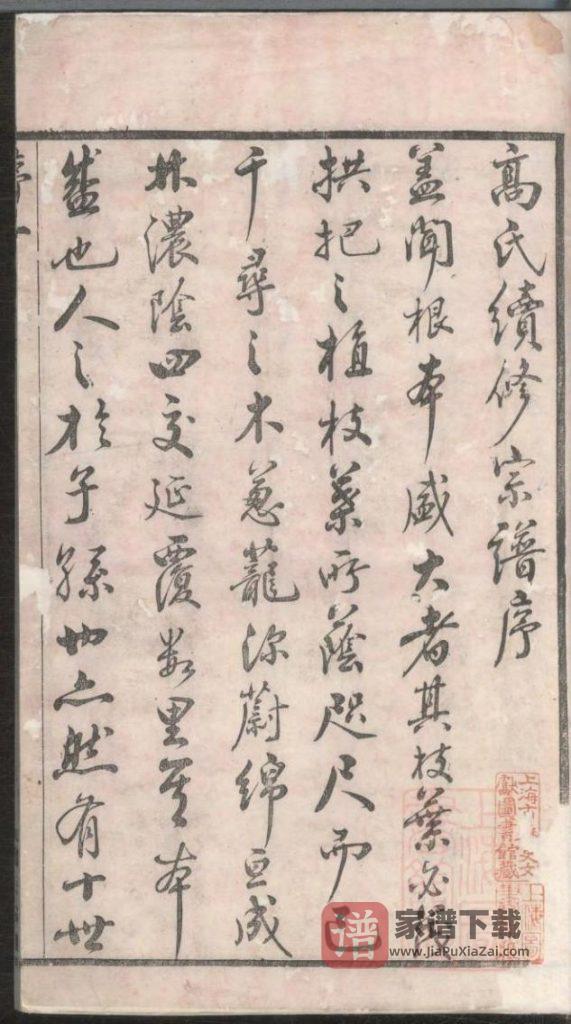 高氏續修宗譜序
蓋聞根本盛大者其枝葉必復
拱把之植枝葉所蔭咫尺而已
千尋之木蔥蘢深蔚綿亘成
林濃陰四交延覆數里至本
盛也人之於子孫也亦然有十世
上海
文
獻圖書館藏
家谱下载
www.JiaPuXiaZai.com
谱